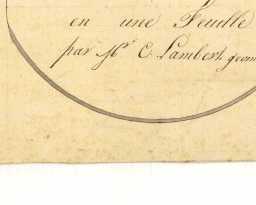 en une Feuille
par Mr. C. Lambert